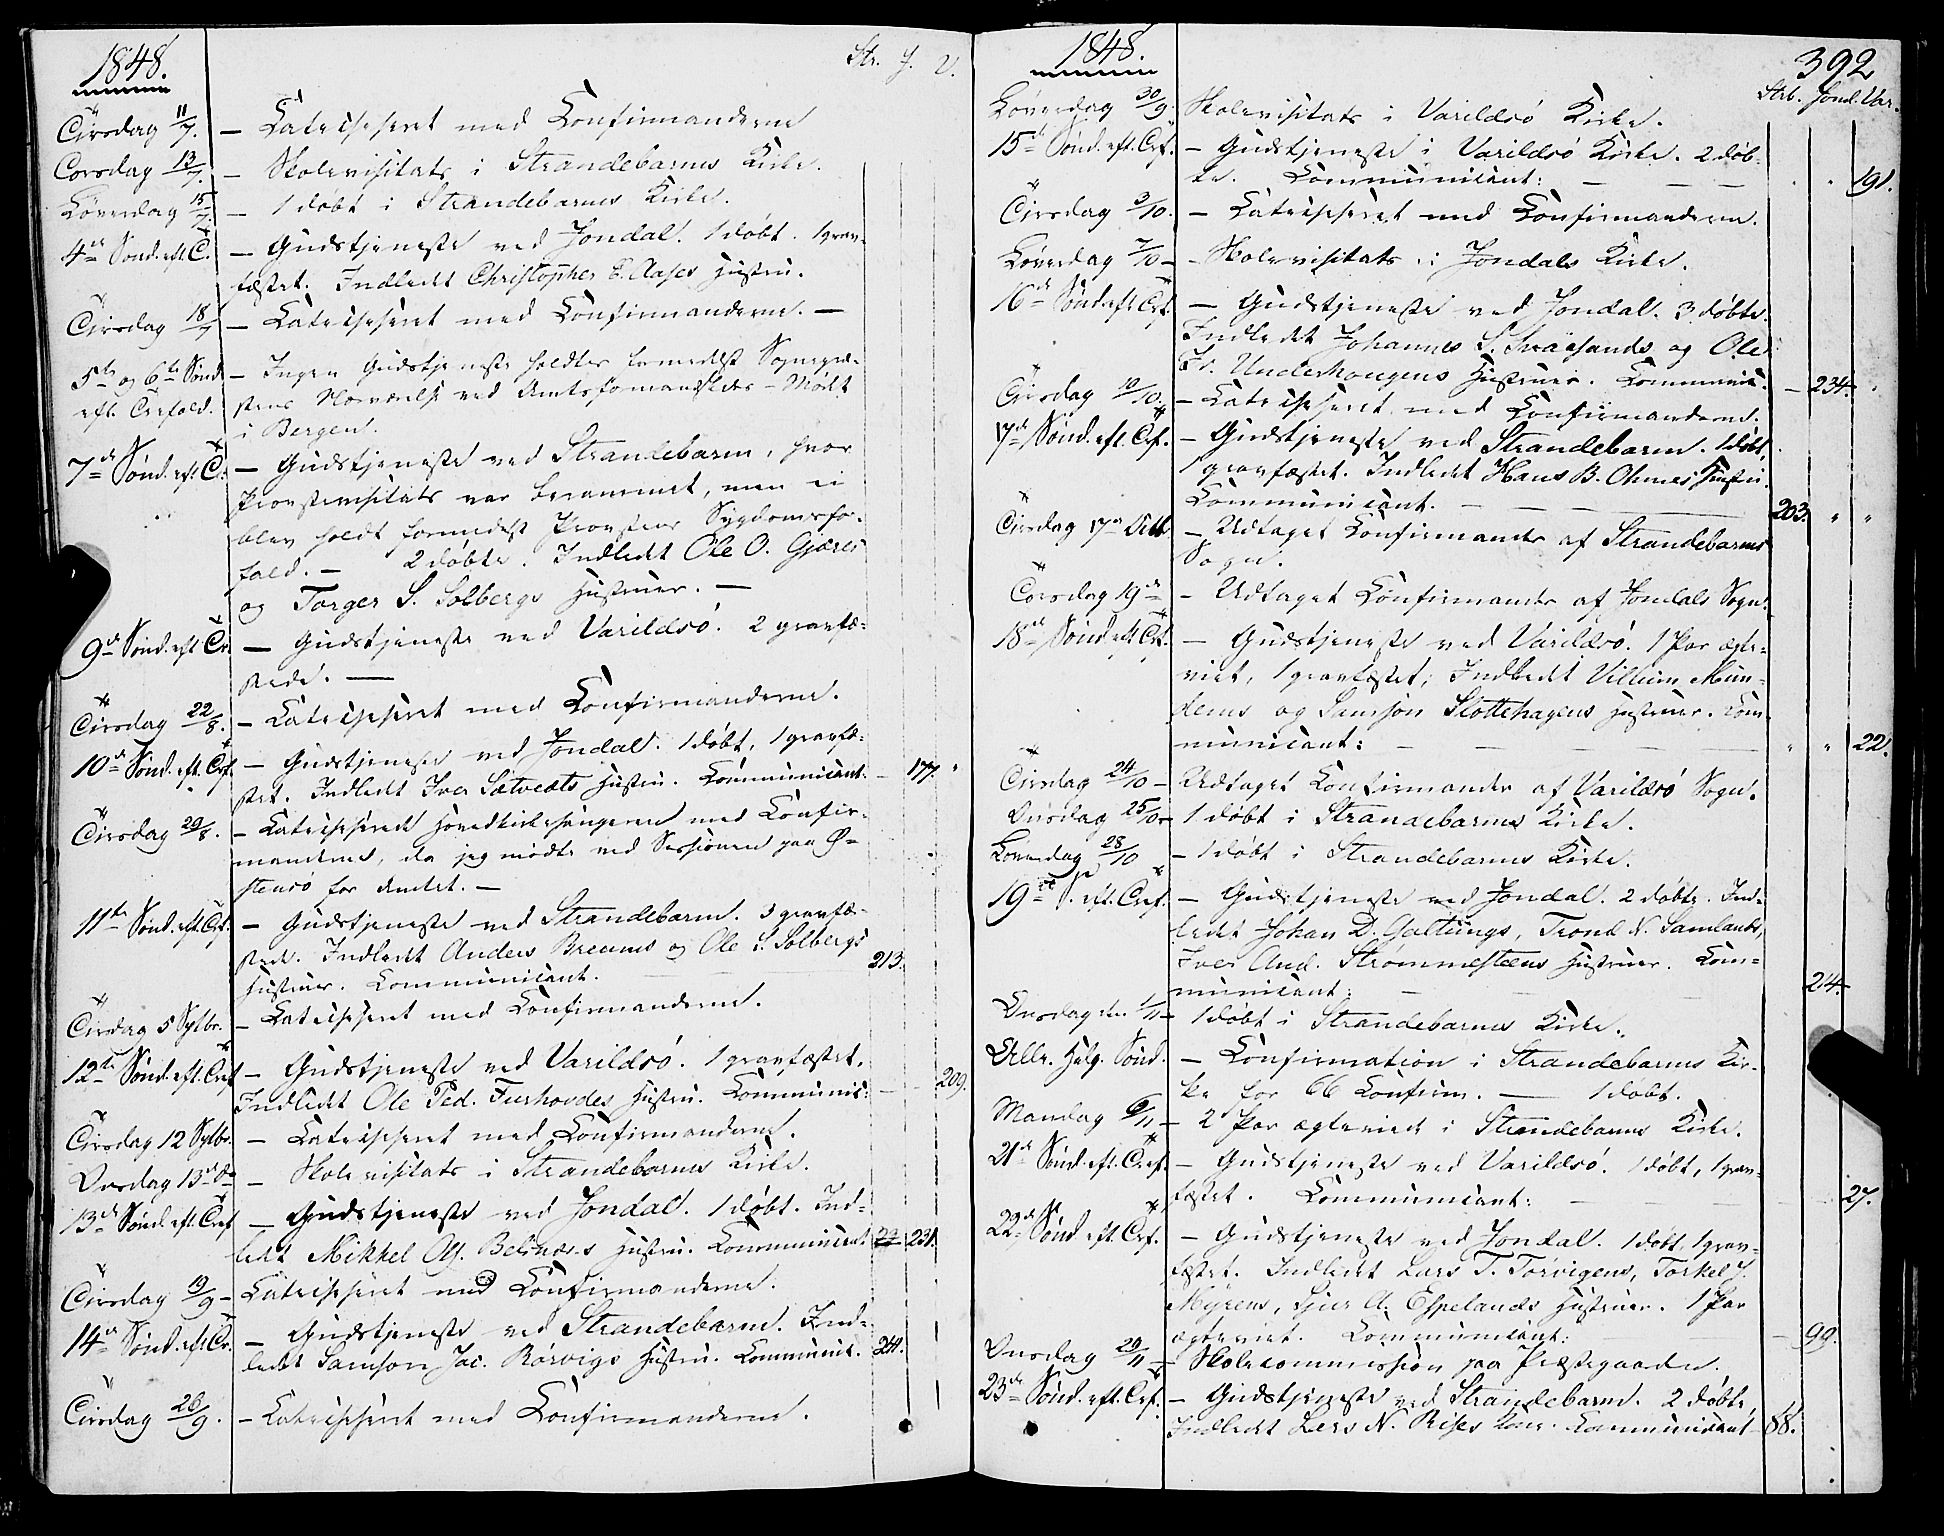 1848.
Str. J. V.
Tirsdag 11/7. – Catechiseret med Confirmanderne
Torsdag 13/7. – Skolevisitats i Strandebarms Kirke.
Løverdag 15/7. – 1 døbt i Strandebarms Kirke.
4de Sønd. eft. T. – Gudstjeneste ved Jondal. 1 døbt. 1 grav-
fæstet. Indledet Christopher E. Aases Hustru.
Tirsdag 18/7 – Catechiseret med Confirmanderne. –
5te og 6te Sønd. – Ingen Gudstjeneste holdtes formedelst Sognepræ-
eft. Trefold. stens Nærværelse ved Amtsformandskabs-Mødet
i Bergen.
7de Sønd. eft. Tr. – Gudstjeneste ved Strandebarm, hvor
Provstevisitats var berammet, men ei
blev holdt formedelst Provstens Sygdomsfor-
fald. – 2 døbte. Indledet Ole O. Gjeres
og Torger S. Solbergs Hustruer. –
9de Sønd. eft. Tr. – Gudstjeneste ved Varildsø. 2 gravfæ-
stede. –
Tirsdag 22/8. – Catechiseret med Confirmanderne.
10de Sønd. eft. Tref. – Gudstjeneste ved Jondal. 1 døbt, 1 gravfæ-
stet. Indledet Iver Sætvedts Hustru. Communicant. – 177. "
Tirsdag 29/8. – Catechiserede Hovedkirkesangeren med Confir-
manderne, da jeg mødte ved Sessionen paa Ø-
stensø for Amtet. –
11te Sønd. eft. Tref. – Gudstjeneste ved Strandebarm. 3 gravfæ-
stede. Indledet Anders Breums og Ole S. Solbergs
Hustruer. Communicant. 213.
Tirsdag 5 Sptbr. – Catechiseret med Confirmanderne.
12te Sønd. eft. Tref. – Gudstjeneste ved Varildsø. 1 gravfæstet.
Indledet Ole Ped. Furhovdes Hustru. Communic: – – 209.
Tirsdag 12 Sptbr. – Catechiseret med Confirmanderne.
Onsdag 13de do – Skolevisitats i Strandebarms Kirke.
13de Sønd. eft. Tref. – Gudstjeneste ved Jondal. 1 døbt. Ind-
ledt Mikkel Asj. Belsnæs's Hustru. Communicant 231.
Tirsdag 19/9 – Catechiseret med Confirmanderne.
14de Sønd. eft. Tr. – Gudstjeneste ved Strandebarm. Ind-
ledet Samson Jac. Rørvigs Hustru. Communic. 241.
Tirsdag 26/9. – Catechiseret med Confirmanderne.
1848.
392
Strb. Jond. Var.
Løverdag 30/9. Skolevisitats i Varildsø Kirke.
15de Sønd. eft. Tref. – Gudstjeneste i Varildsø Kirke. 2 døb-
te. Communicant: – – – " " 191.
Tirsdag 3/10. – Catechiseret med Confirmanderne.
Løverdag 7/10 – Skolevisitats i Jondals Kirke.
16de Sønd. eft. Tref. – Gudstjeneste ved Jondal. 3 døbte.
Indledet Johannes S. Svaasands og Ole
Fr. Underhougens Hustruer. Communic. – 234. "
Tirsdag 10/10. – Catechiseret med Confirmanderne.
17de Sønd. eft. Tref. – Gudstjeneste ved Strandebarm. 1 døbt,
1 gravfæstet. Indledet Hans B. Ohmes Hustru.
Communicant. – – – 203. " "
Tirsdag 17de Octb. – Udtaget Confirmander af Strandebarms
Sogn.
Torsdag 19de – Udtaget Confirmander af Jondals Sogn.
18de Sønd. eft. Tref. – Gudstjeneste ved Varildsø. 1 Par ægte-
viet, 1 gravfæstet; Indledet Villum Mun-
dems og Samson Slottehagens Hustruer. Com-
municant: – – – " " 22.
Tirsdag 24/10 – Udtaget Confirmander af Varildsø Sogn.
Onsdag 25/10 – 1 døbt i Strandebarms Kirke.
Løverdag 28/10 – 1 døbt i Strandebarms Kirke.
19de S. eft. Tref. – Gudstjeneste ved Jondal. 2 døbte. Ind-
ledet Johan D. Galtungs, Trond N. Samlands,
Iver And. Strømmestens Hustruer. Com-
municant: – – – 24.
Onsdag den 1/11 – 1 døbt i Strandebarms Kirke.
Alle Helg. Sønd. – Confirmation i Strandebarms Kir-
ke for 66 Confirm. – 1 døbt.
Mandag 6/11 – 2 Par ægteviede i Strandebarms Kirke.
21de Sønd. eft. Tref. – Gudstjeneste ved Varildsø. 1 døbt, 1 grav-
fæstet. Communicant: – 27.
22de Sønd. eft. Tref. – Gudstjeneste ved Jondal. 1 døbt, 1 grav-
fæstet. Indledet Lars T. Torvigens, Torkel J.
Myrens, Sjur A. Espelands Hustruer. 1 Par
ægteviet. Communicant: – 99.
Onsdag 29/11 – Skolecommission paa Præstegaarden.
23de Sønd. eft. Tref. – Gudstjeneste ved Strandebarm. 2 døbte,
Indledet Lars N. Rises Kone. Communicant – 88.